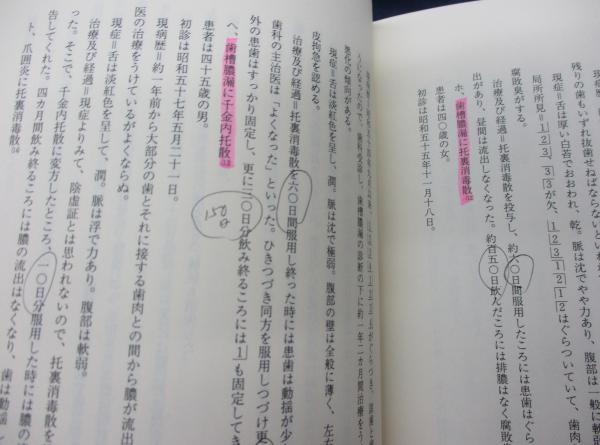 残りの歯もいずれ抜去せねばならないといわれ
現症=舌は厚い白苔でおおわれ、乾。脈は沈でやや力あり、腹部は一般に軟
局所所見=1 2 3、3 3が欠、1 2 3 1 2 1 2はぐらついていて、歯
腐敗臭がする。
治療及び経過=托裏消毒散を投与し、約六〇日間服用したころには患歯はぐら
出があり、昼間は流出しなくなった。約百五〇日飲んだころには排膿はなく腐敗
ホ、歯槽膿漏に托裏消毒散
患者は四〇歳の女。
初診は昭和五十五年十一月十八日。
悪化の傾向がある。
現症=舌は淡紅色を呈し、潤。脈は沈で極弱。腹部の壁は全般に薄く、左右
皮拘急を認める。
治療及び経過=托裏消毒散を六〇日間服用し終った時には患歯は動揺が少
歯科の主治医は「よくなった」といった。ひきつづき同方を服用しつづけ更
外の患歯はすっかり固定し、更に二〇日分飲み終るころには1も固定してき
150日
ヘ、歯槽膿漏に千金内托散
患者は四十五歳の男。
初診は昭和五十七年五月二十一日。
現病歴=約一年前から大部分の歯とそれに接する歯肉との間から膿が流出
医の治療をうけているがよくならぬ。
現症=舌は淡紅色を呈して、潤。脈は浮で力あり。腹部は軟弱。
治療及び経過=現症よりみて、陰虚証とは思われないので、托裏消毒散
った。そこで、千金内托散に変方したところ、一〇日分服用した時には膿の
告してくれた。四カ月間飲み終るころには膿の流出はなくなり、歯は動揺
ト、爪囲炎に托裏消毒散